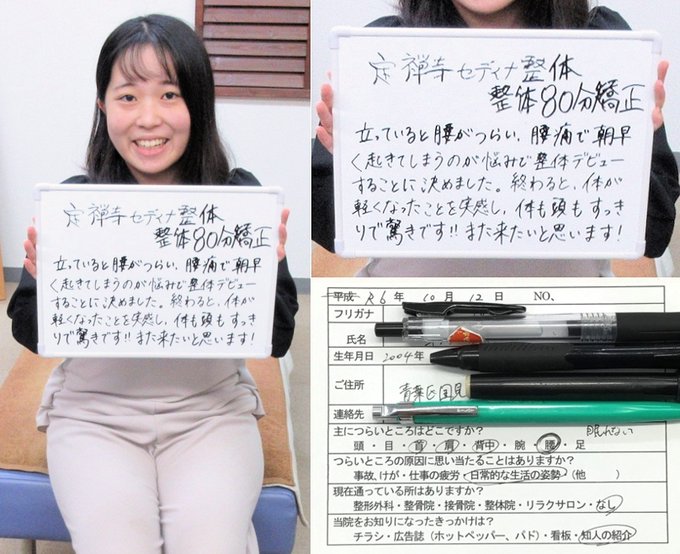 定禅寺セディナ整体
整体80分矯正
立っていると腰がつらい、腰痛で朝早
く起きてしまうのが悩みで整体デビュー
することに決めました。終わると、体が
軽くなったことを実感し、体も頭もすっき
りで驚きです!!また来たいと思います!
定禅寺セディナ整体
整体80分矯正
立っていると腰がつらい、腰痛で朝早
く起きてしまうのが悩みで整体デビュー
することに決めました。終わると、体が
軽くなったことを実感し、体も頭もすっき
りで驚きです!!また来たいと思います!
平成 R6年 10月 12日 NO、
フリガナ
氏名
生年月日 2004年
ご住所 青葉区国見
連絡先
主につらいところはどこですか? 眠れない
頭・目・首・肩・背中・腕・腰・足
つらいところの原因に思い当たることはありますか?
事故、けが・仕事の疲労・日常的な生活の姿勢・(他 )
現在通っている所はありますか?
整形外科・整骨院・接骨院・整体院・リラクサロン・なし
当院をお知りになったきっかけは?
チラシ・広告誌(ホットペッパー、パド)・看板・知人の紹介